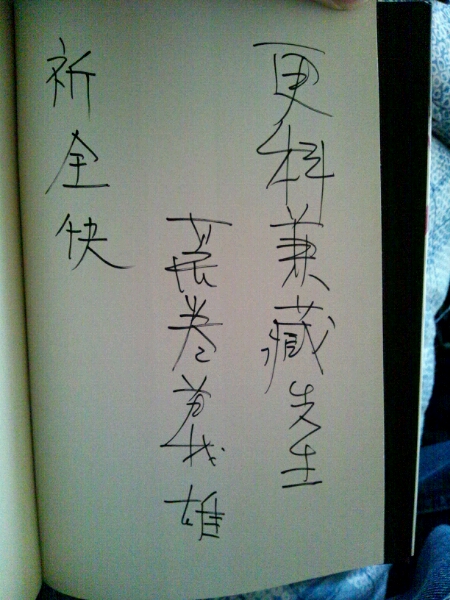 更科兼蔵先生
荒巻義雄
祈全快